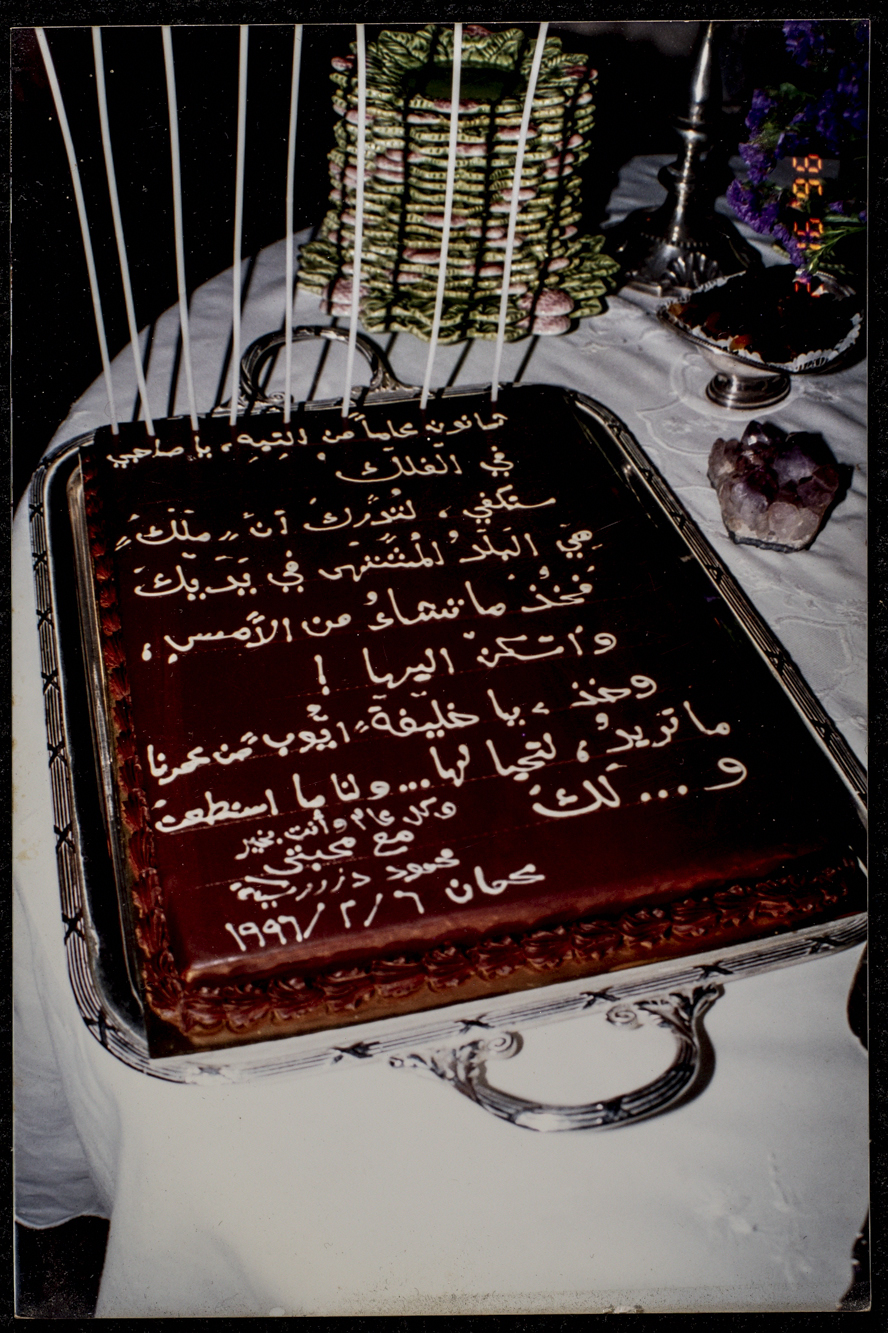 ثمانون عاماً من التيهِ، يا صاحبي
في الفلك
ستكفي، لتُدْرِكَ أنَّ مَلَكْ
هِيَ البَلَدُ المُشْتَهى في يَدَيكَ
فَخُذْ ما تشاءُ من الأمسِ،
واتكئ اليها !
وخذ، يا خليفة ايّوب، من عمرنا
ما تريدُ، لتحيا لها... ولنا ما استطعتَ
و... لَكَ
وكل عام وأنت بخير
مع محبتي
محمود درويش
عمان ٦/٢/١٩٩٦
96